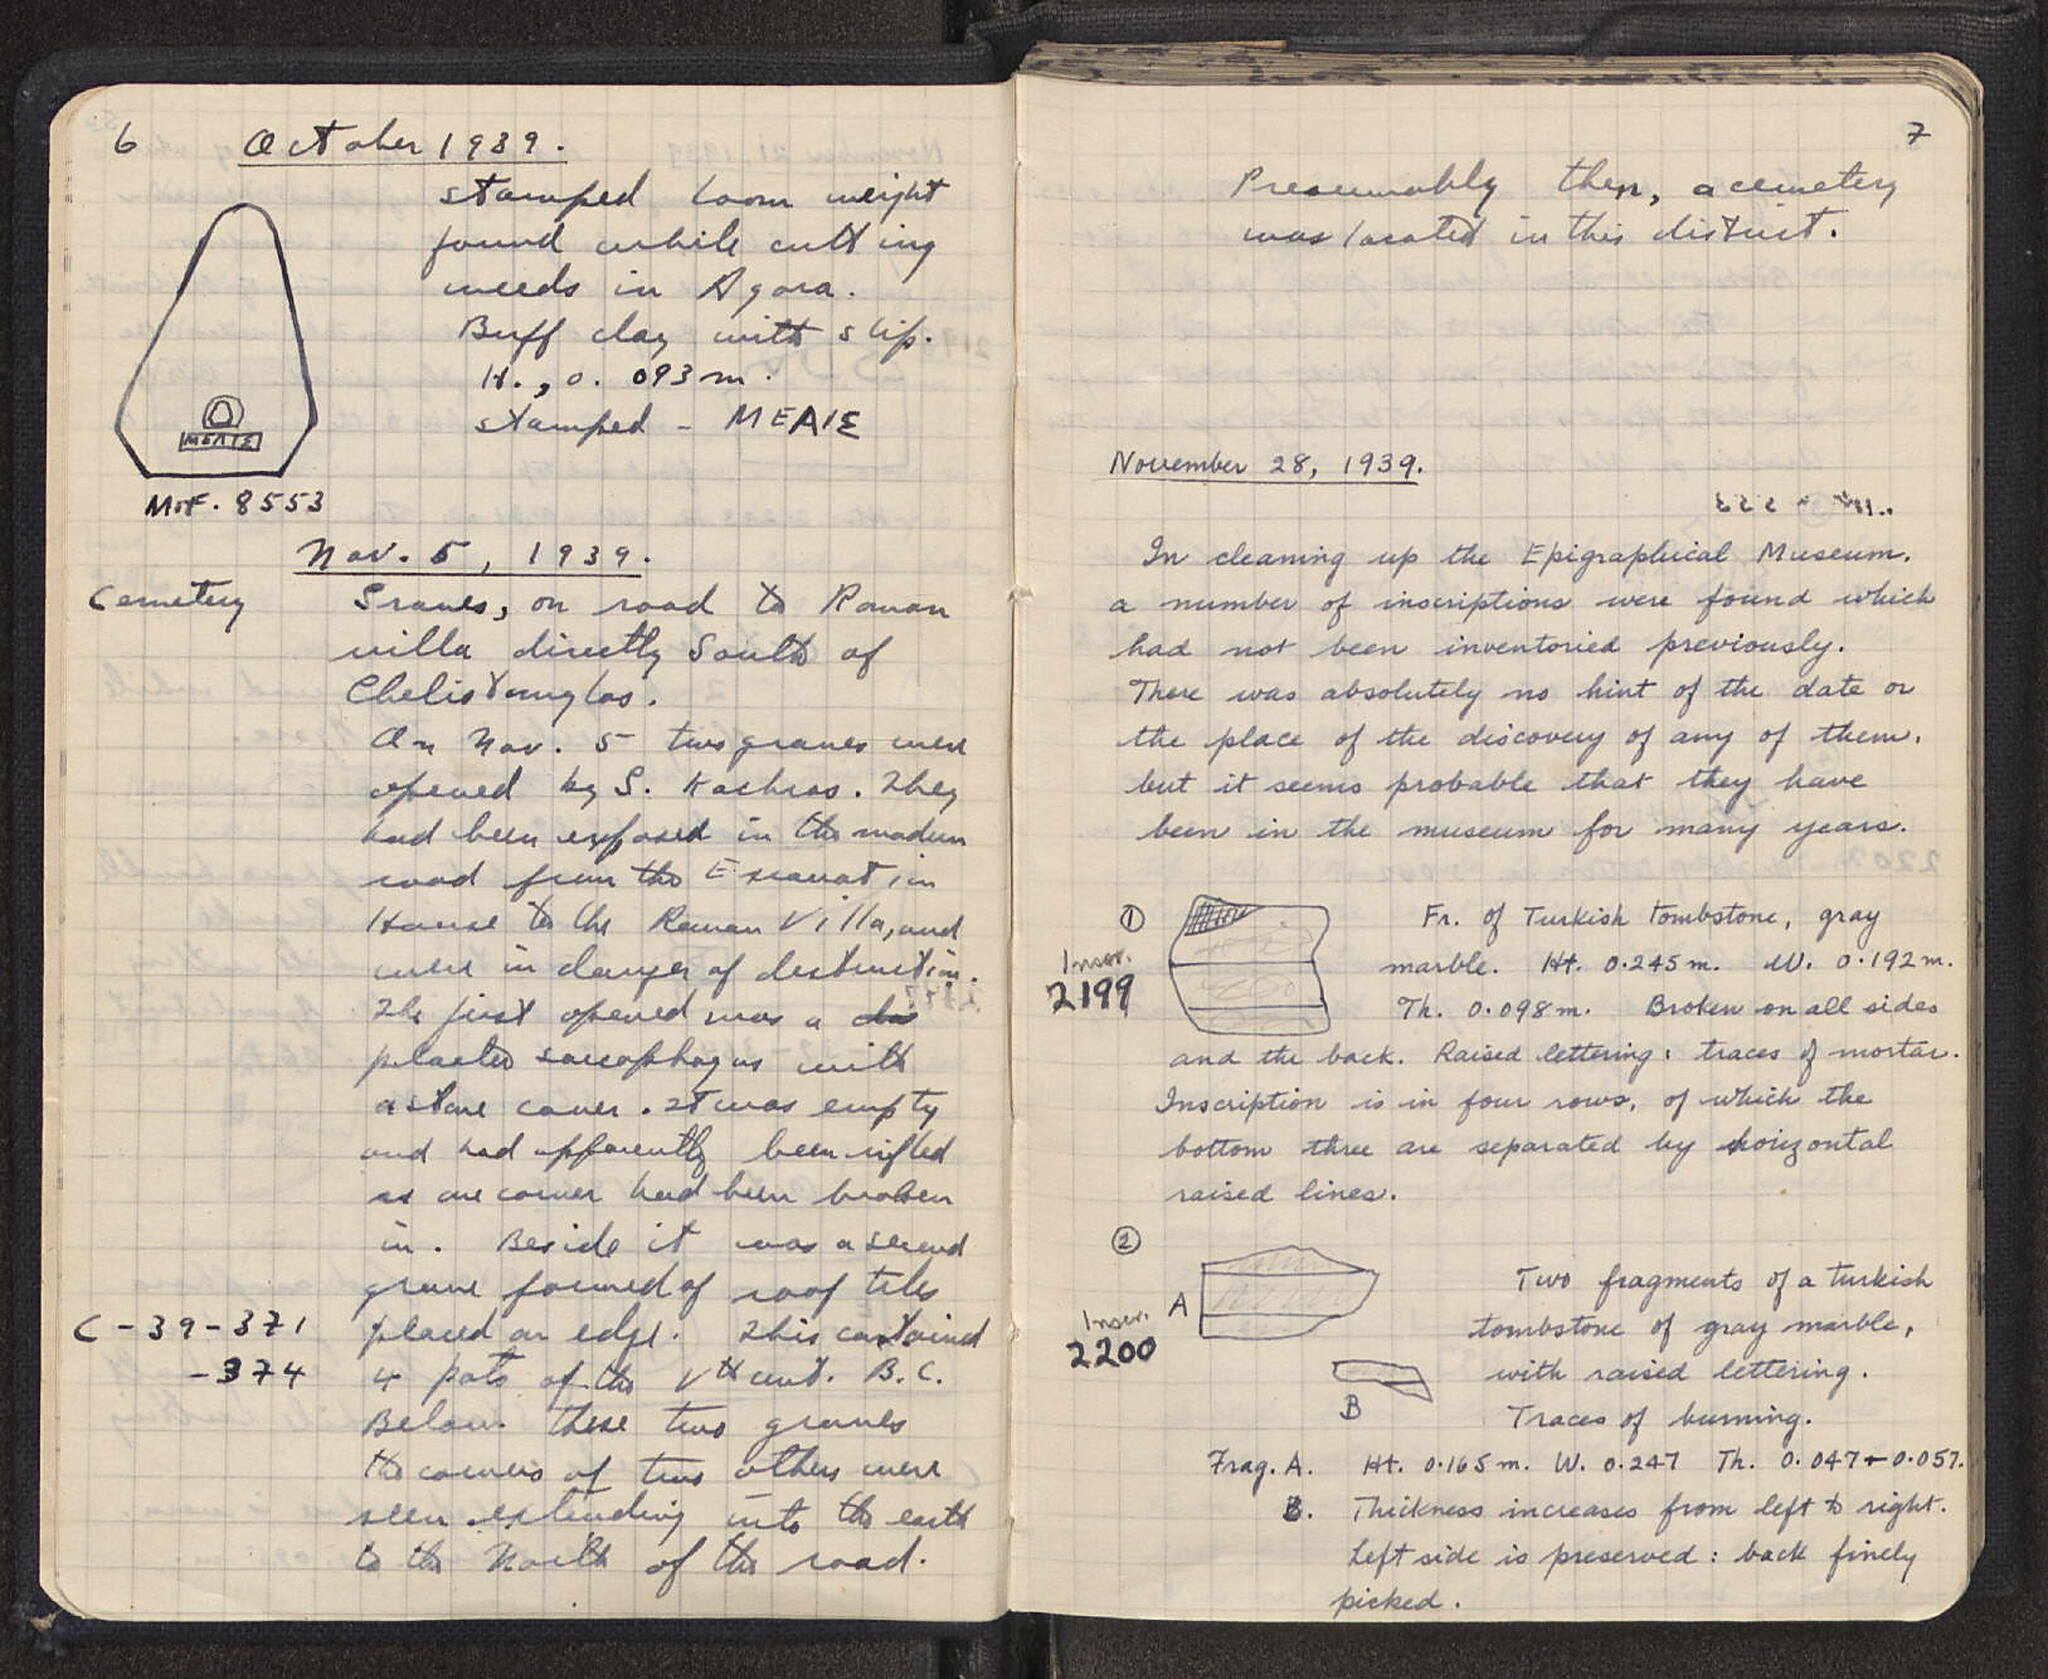 6
October 1939.
stamped loom weight
found while cutting
weeds in Agora.
Buff clay with slip.
H., 0.093 m.
stamped - MEΛIΣ
MEΛIΣ
MF. 8553
Nov. 5, 1939.
Cemetery
Graves, on road to Roman
villa directly South of
Cheliotomylos.
On Nov. 5 two graves were
opened by S. Kachros. They
had been exposed in the modern
road from the Excavation
House to the Roman Villa, and
were in danger of destruction.
The first opened was a
plaster sarcophagus with
a stone cover. It was empty
and had apparently been rifled
as one corner had been broken
in. Beside it was a second
grave formed of roof tiles
C-39-371
placed on edge. This contained
-374
4 pots of the Vth cent. B.C.
Below these two graves
the corners of two others were
seen extending into the earth
to the North of the road.
7
Presumably then, a cemetery
was located in this district.
November 28, 1939.
In cleaning up the Epigraphical Museum,
a number of inscriptions were found which
had not been inventoried previously.
There was absolutely no hint of the date or
the place of the discovery of any of them,
but it seems probable that they have
been in the museum for many years.
①
Inscr.
2199
Fr. of Turkish tombstone, gray
marble. Ht. 0.245 m. W. 0.192 m.
Th. 0.098 m. Broken on all sides
and the back. Raised lettering: traces of mortar.
Inscription is in four rows, of which the
bottom three are separated by horizontal
raised lines.
②
Inscr.
2200
A
B
Two fragments of a Turkish
tombstone of gray marble,
with raised lettering.
Traces of burning.
Frag. A. Ht. 0.165 m. W. 0.247 Th. 0.047 - 0.057.
B. Thickness increases from left to right.
Left side is preserved: back finely
picked.